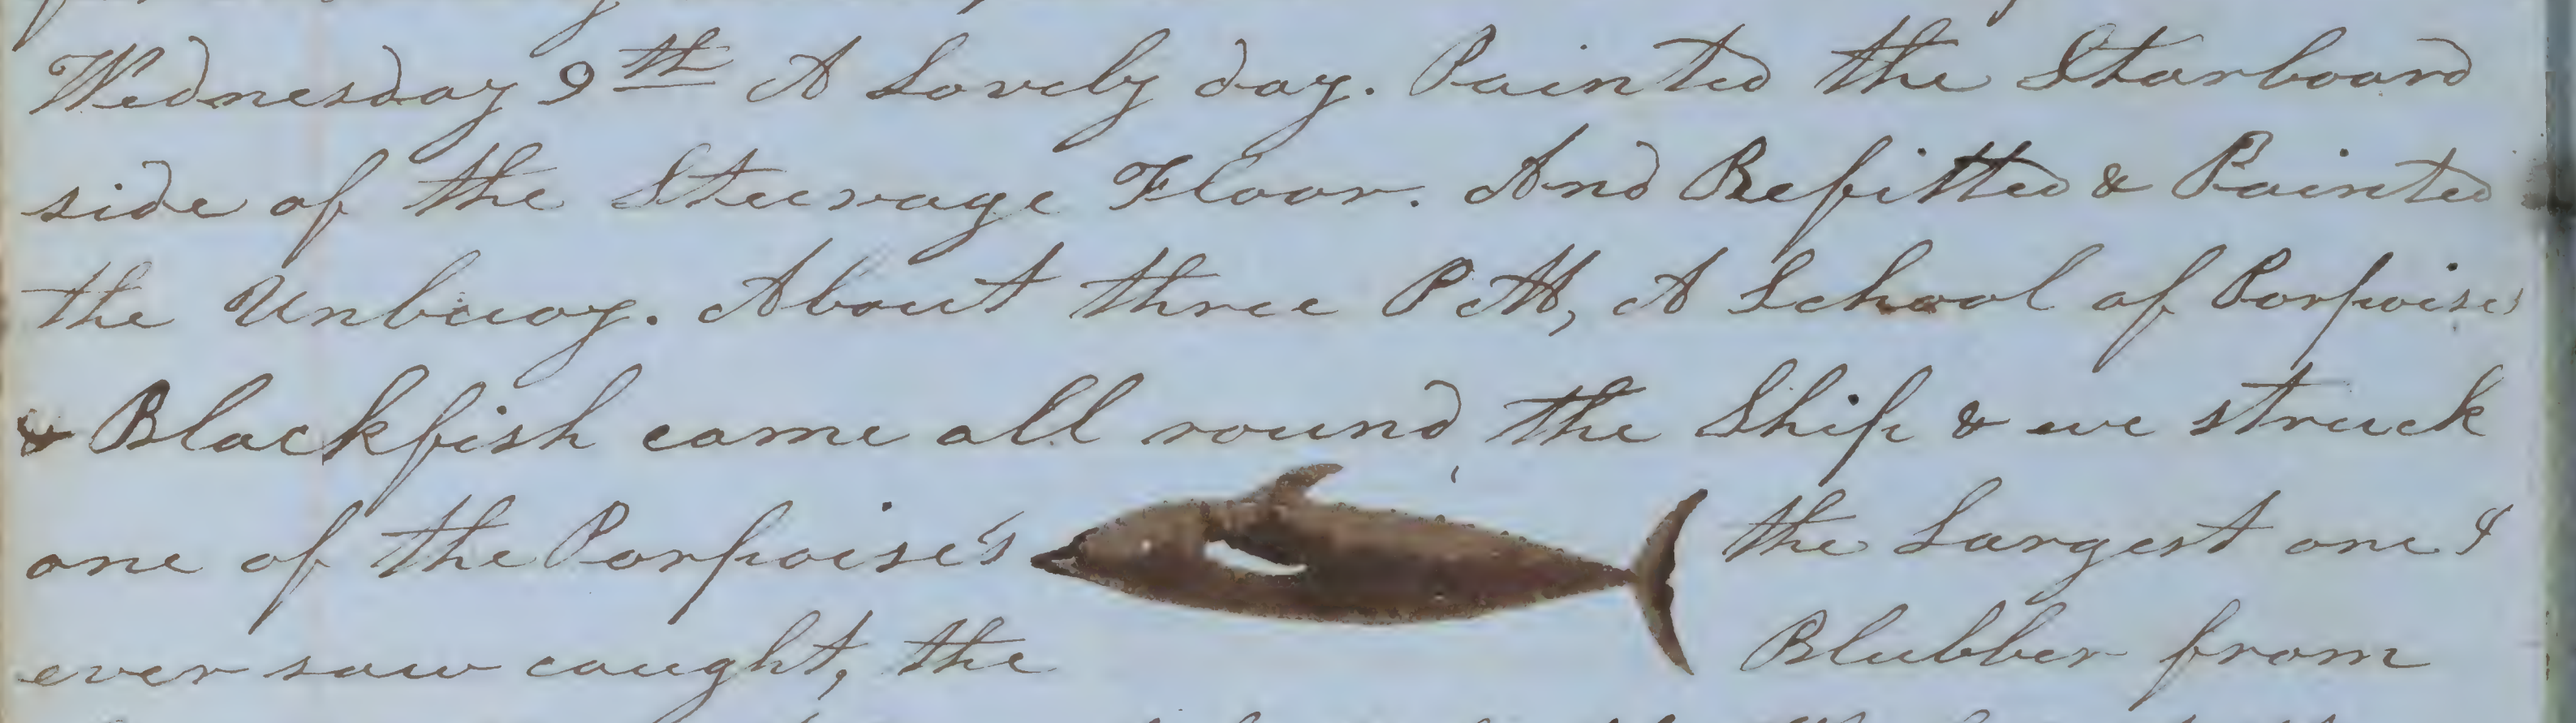 Wednesday 9th A Lovely day. Painted the Starboard
side of the Steerage Floor. And Refitted & Painted
the About three PM, A School of Porpoises
& Blackfish came all round the Ship & we struck
one of the Porpoise's the Largest one I
ever saw caught, the Blubber from